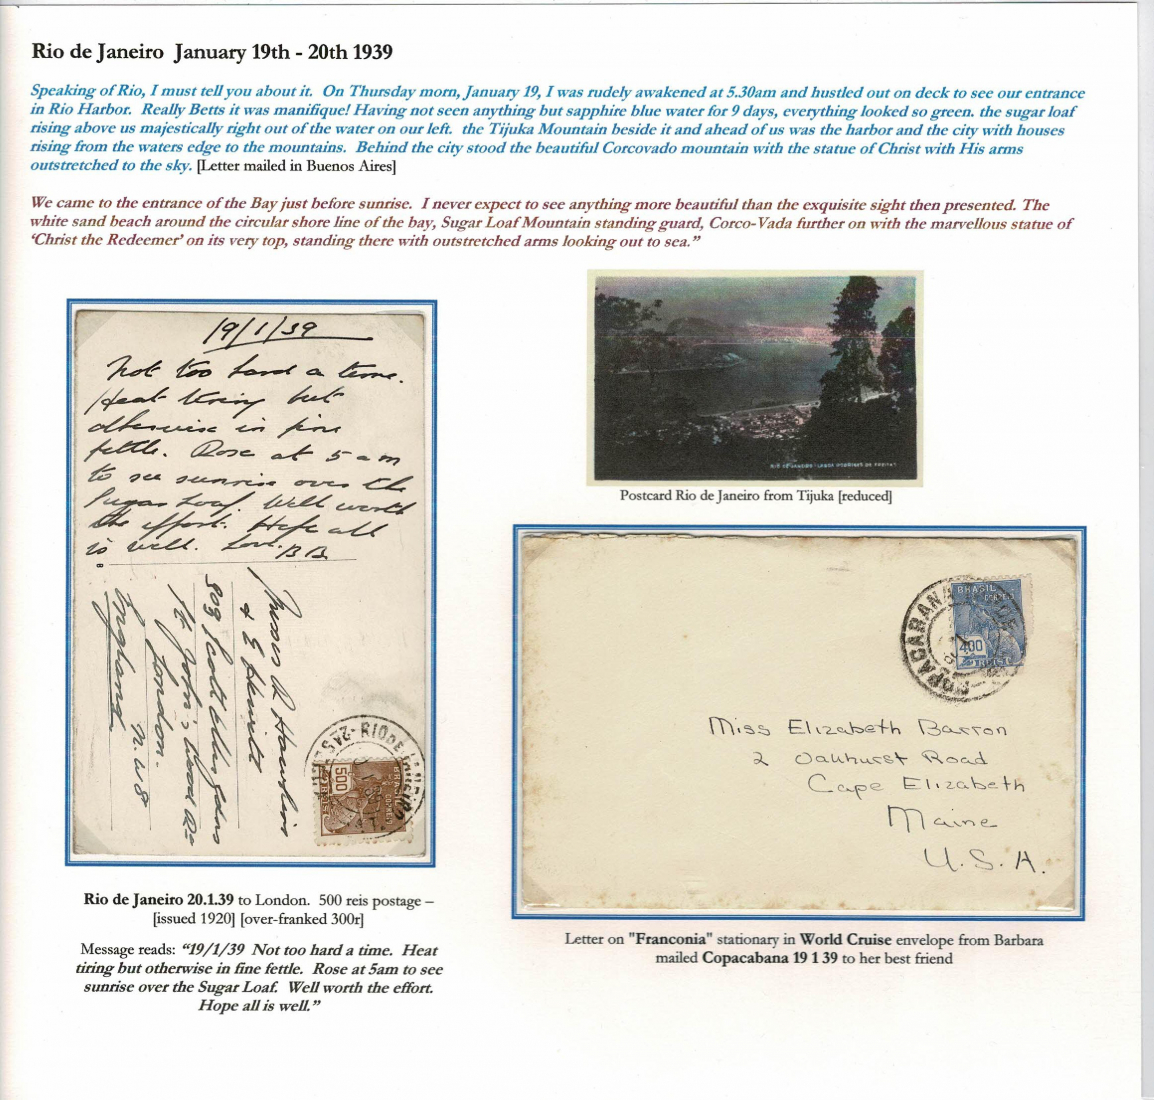 Rio de Janeiro January 19th - 20th 1939
Speaking of Rio, I must tell you about it. On Thursday morn, January 19, I was rudely awakened at 5.30am and hustled out on deck to see our entrance
in Rio Harbor. Really Betts it was manifique! Having not seen anything but sapphire blue water for 9 days, everything looked so green. the sugar loaf
rising above us majestically right out of the water on our left. the Tijuka Mountain beside it and ahead of us was the harbor and the city with houses
rising from the waters edge to the mountains. Behind the city stood the beautiful Corcovado mountain with the statue of Christ with His arms
outstretched to the sky. [Letter mailed in Buenos Aires]
We came to the entrance of the Bay just before sunrise. I never expect to see anything more beautiful than the exquisite sight then presented. The
white sand beach around the circular shore line of the bay, Sugar Loaf Mountain standing guard, Corco-Vada further on with the marvellous statue of
'Christ the Redeemer' on its very top, standing there with outstretched arms looking out to sea."
19/1/39
Not too hard a time.
Heat tiring but
otherwise in fine
fettle. Rose at 5 am
to see sunrise over the
Sugar Loaf. Well worth
the effort. Hope all
is well. Love. BB
8
Misses A
& E
St John's Wood Rd
London.
N.W 8
England
RIO DE JANEIRO
BRASIL
CORREIO
500
REIS
RIO DE JANEIRO - LAGOA RODRIGO DE FREITAS
Postcard Rio de Janeiro from Tijuka [reduced]
COPACABANA
BRASIL
CORREIO
400
REIS
Miss Elizabeth Barron
2 Oakhurst Road
Cape Elizabeth
Maine
U.S.A.
Rio de Janeiro 20.1.39 to London. 500 reis postage –
[issued 1920] [over-franked 300r]
Message reads: "19/1/39 Not too hard a time. Heat
tiring but otherwise in fine fettle. Rose at 5am to see
sunrise over the Sugar Loaf. Well worth the effort.
Hope all is well."
Letter on "Franconia" stationary in World Cruise envelope from Barbara
mailed Copacabana 19 1 39 to her best friend